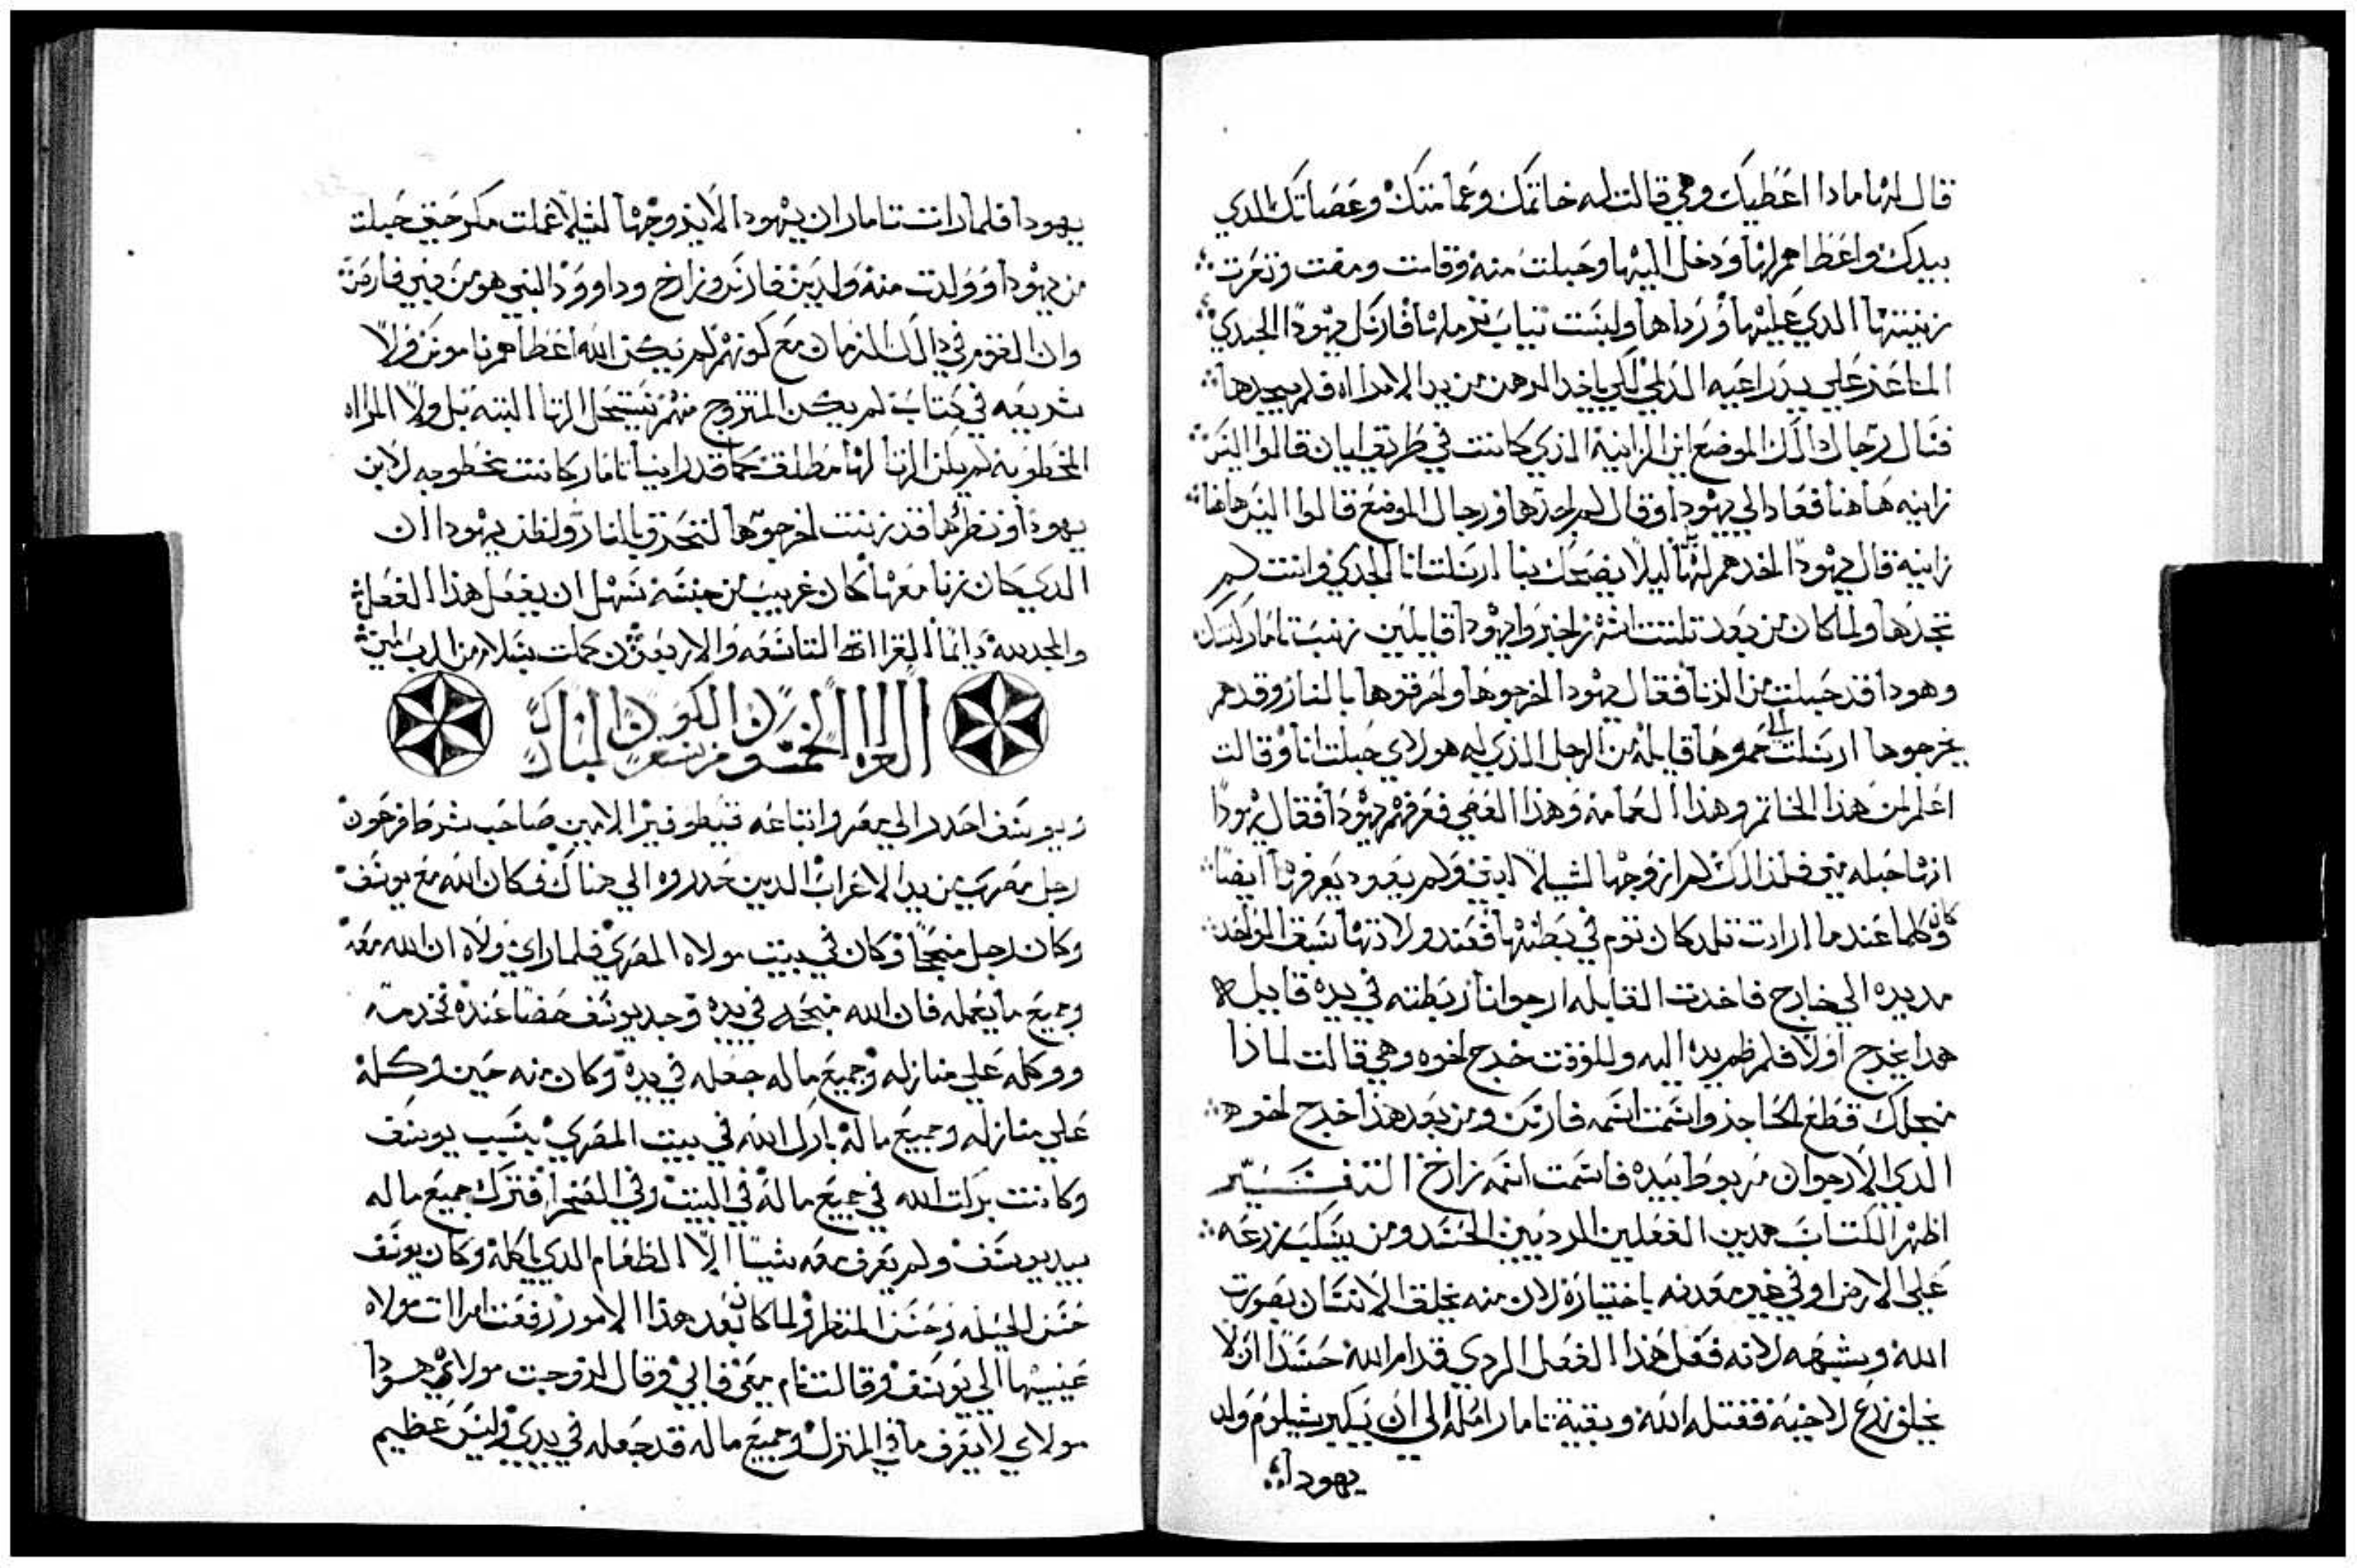 قال لها مادا اعطيك وهي قالت له خاتمك وعمامتك وعصاتك الدي
بيدك واعطاهم لها ودخل اليها وحبلت منه وقامت ومضت ونعرت
زينتها الدي عليها ورداها ولبست تياب ترملها فارسل يهودا الجدي
الماعز علي يد راعيه الدلي لكي ياخد الرهن من يد الامراه فلم يجدها
فسال رجال دالك الموضع اين الزانية الذي كانت في طريق ايان قالوا ليس
زانيه هاهنا فعاد الي يهودا وقال لم اجدها ورجال الموضع قالوا ليس هاهنا
زانيه قال يهودا اخدهم لها ليلا يضحك بنا ارسلت انا الجدي وانت لم
تجدها ولما كان من بعد تلتت اشهر اخبروا يهودا قايلين زنت تامار كنتك
وهودا قد حبلت من الزنا فقال يهودا اخرجوها واحرقوها بالنار وقدهم
يخرجوها ارسلت الي حموها قايله من الرجل الذي له هولاي حبلت انا وقالت
اعلم لمن هذا الخاتم وهذا العمامه وهذا العصي فعرفهم يهودا فقال يهودا
انها حبله مني فلذالك لم ازوجها لشيلا ابني ولم يعود يعرفها ايضا
وكانه كلما عندما ارادت تلد كان توم في بطنها فعند ولادتها سبق الواحد
مد يده الي خارج فاخدت القابله ارجوانا ربطته في يده قايله
هدا يخرج اولا فلم ظم يده اليه وللوقت خرج اخوه وهي قالت لماذا
منجلك قطع الحاجز واسمت اسمه فارص ومن بعد هذا خرج اخوه
الدي الارجوان مربوط بيده فاسمت اسمه زارخ التفسير
اظهر الكتاب هدين الفعلين الرديين الحسد ومن يسكب زرعه
علي الارض او في غير معدنه باختياره لان منه يخلق الانسان بصورت
الله وشبهه لانه فعل هذا الفعل الردي قدام الله حسدا ان لا
يخلق زرع لاخيه فقتله الله وبقية تامار امله الي ان يكبر شيلوم ولد
يهودا
يهودا فلما رات تامار ان يهودا لا يزوجها لشيلا عملت مكر حتي حبلت
من يهودا وولدت منه ولدين فارص وزارخ وداوود النبي هو من بني فارص
وان القوم في دالك الزمان مع كونهم لم يكن الله اعطاهم ناموس ولا
شريعه في كتاب لم يكن المتزوج منهم يستحل الزنا البته بل ولا المراه
المخطوبه لم يكن الزنا لها مطلق كما قد راينا تامار كانت مخطوبه لابن
يهودا ونظرها قد زنت اخرجوها لتحرق بالنار ولظن يهودا ان
الدي كان زنا معها كان غريب من جنسه سهل ان يفعل هذا الفعل
والمجد لله دايما القراات التاسعه والاربعون كملت بسلام من الرب امين
القراه الخمسون من سفر الكون المبارك
ويوسف احدر الي مصر وابتاعه قيطوفير الامين صاحب شرط فرعون
رجل مصري من يد الاعراب الدين حدروه الي هناك فكان الله مع يوسف
وكان رجل منجحا وكان في بيت مولاه المصري فلما راي مولاه ان الله معه
وجميع ما يعمله فان الله منجحه في يده وجد يوسف حضا عنده فخدمه
ووكله علي منازله وجميع ماله جعله في يده وكان منه حين وكله
علي منازله وجميع ماله بارك الله في بيت المصري بسبب يوسف
وكانت بركت الله في جميع ماله في البيت وفي الصحرا فترك جميع ماله
بيد يوسف ولم يعرف معه شيا الا الطعام الدي ياكله وكان يوسف
حسن الحيله وحسن المنظر ولما كان بعد هذا الامور رفعت امرات مولاه
عينيها الي يوسف وقالت نام معي فابي وقال لزوجت مولاي هودا
مولاي لا يعرف ما في المنزل وجميع ماله قد جعله في يدي وليس عظيم